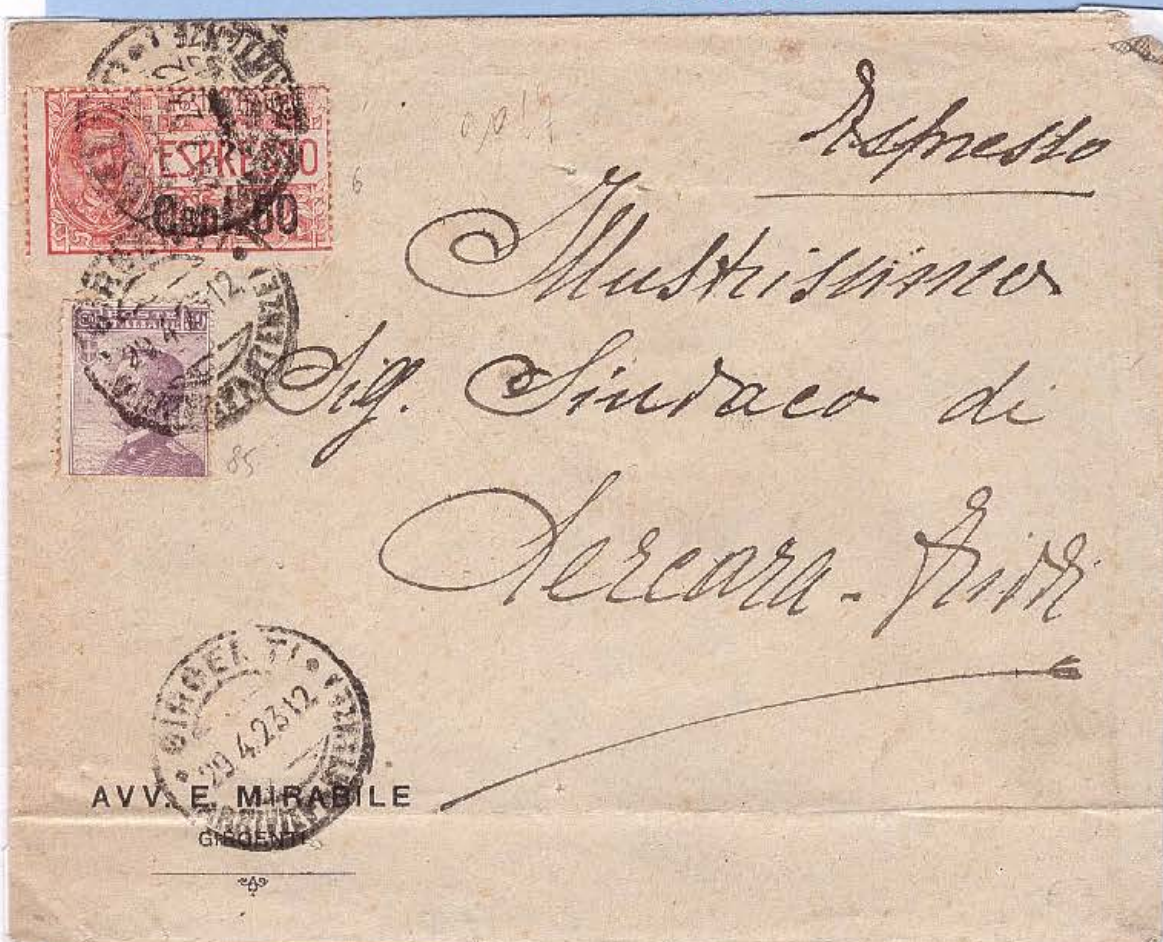 Espresso
ESPRESSO
Cent. 60
6
Illustrissimo
Sig. Sindaco di
85
Lercara - Friddi
GIRGENTI
29.4.23.12
AVV. E. MIRABILE
GIRGENTI